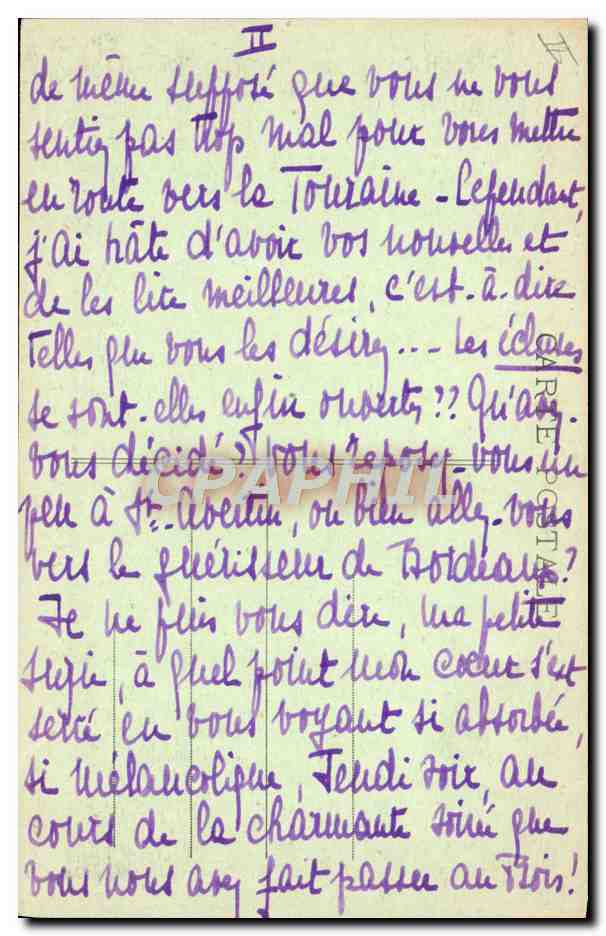 II
II
de même supposé que vous ne vous
sentiez pas trop mal pour vous mettre
en route vers la Touraine - Cependant,
j'ai hâte d'avoir vos nouvelles et
de les lire meilleures, c'est-à-dire
telles que vous les désirez... - Les écluses
se sont-elles enfin ouvertes ?? Qu'avez-
vous décidé ? Vous reposez-vous un
peu à St-Avertin, ou bien allez-vous
vers le guérisseur de Bordeaux ?
Je ne puis vous dire, ma petite
Suzie, à quel point mon cœur s'est
serré en vous voyant si absorbée,
si mélancolique, Jeudi soir, au
cours de la charmante soirée que
vous nous avez fait passer au Bois !
CARTE POSTALE
CPAPHIL